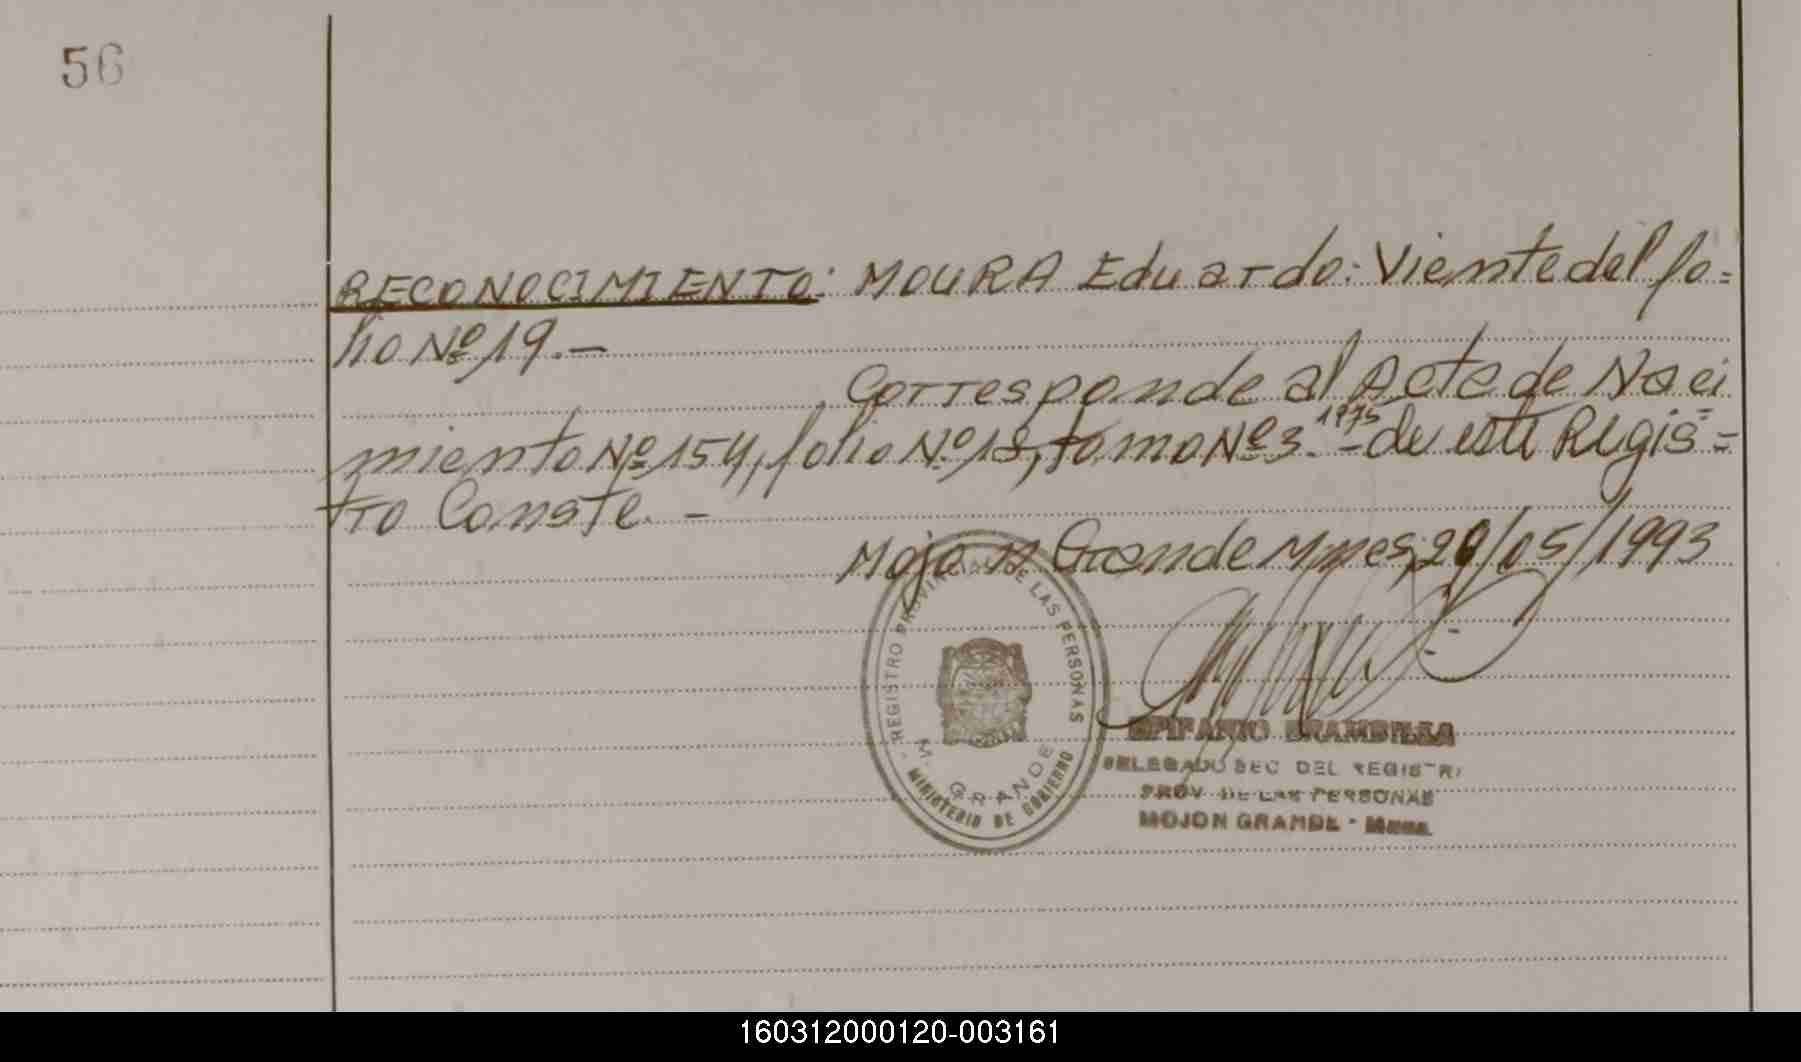 56
RECONOCIMIENTO: MOURA Eduardo: Viente del fo=
lio Nº 19.—
Corresponde al Acta de Naci=
miento Nº 154, folio Nº 18, tomo Nº 3.- 1975 de este Regis=
tro Conste. -
Mojon Grande Mnes, 20/05/1993
REGISTRO PROVINCIAL DE LAS PERSONAS
M. GRANDE
MINISTERIO DE GOBIERNO
EPIFANIO BRAMBILLA
DELEGADO SEC DEL REGISTR
PROV DE LAS PERSONAS
MOJON GRANDE - Mnes.
160312000120-003161